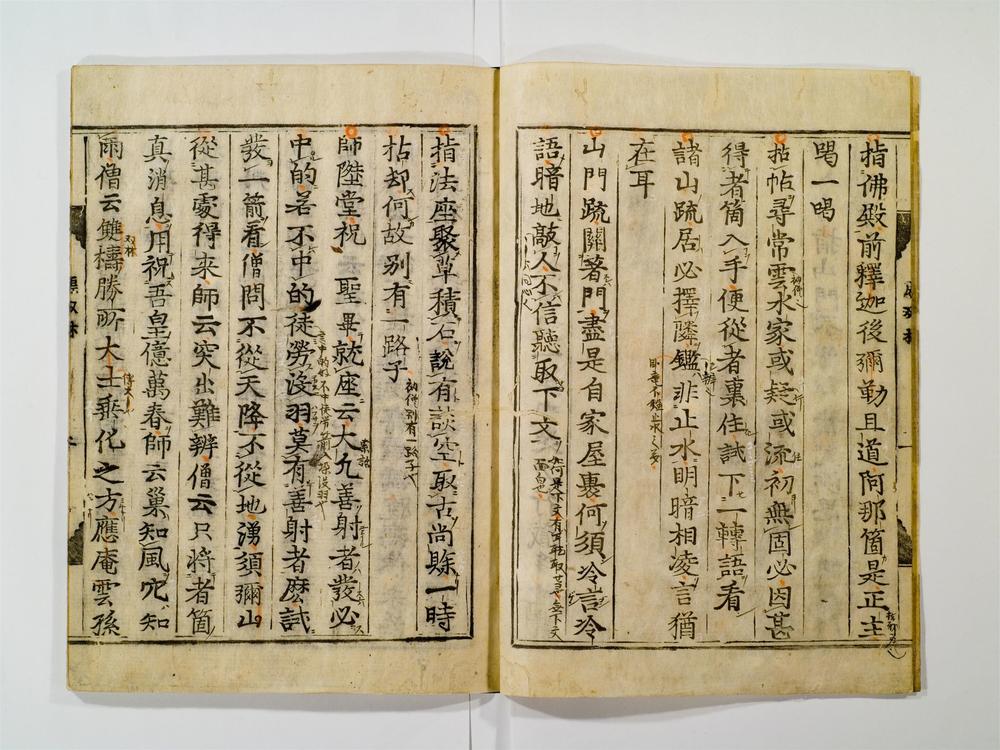 指佛殿前釋迦後彌勒且道阿那箇是正主
喝一喝
拈帖尋常雲水家或疑或流初無固必因甚
得者箇入手便從者裏住試下一轉語看
諸山疏居必擇隣鑑非止水明暗相凌言猶
在耳
山門疏關著門盡是自家屋裏何須冷言冷
語暗地敲人不信聽取下文
指法座聚草積石說有談空取古尚賒一時
拈却何故別有一路子
師陞堂祝 聖畢就座云大凡善射者發必
中的若不中的徒勞沒羽莫有善射者麼試
發一箭看僧問不從天降不從地湧須彌山
從甚處得來師云突出難辨僧云只將者箇
真消息用祝吾皇億萬春師云巢知風穴知
雨僧云雙檮勝所大士乘化之方應庵雲孫